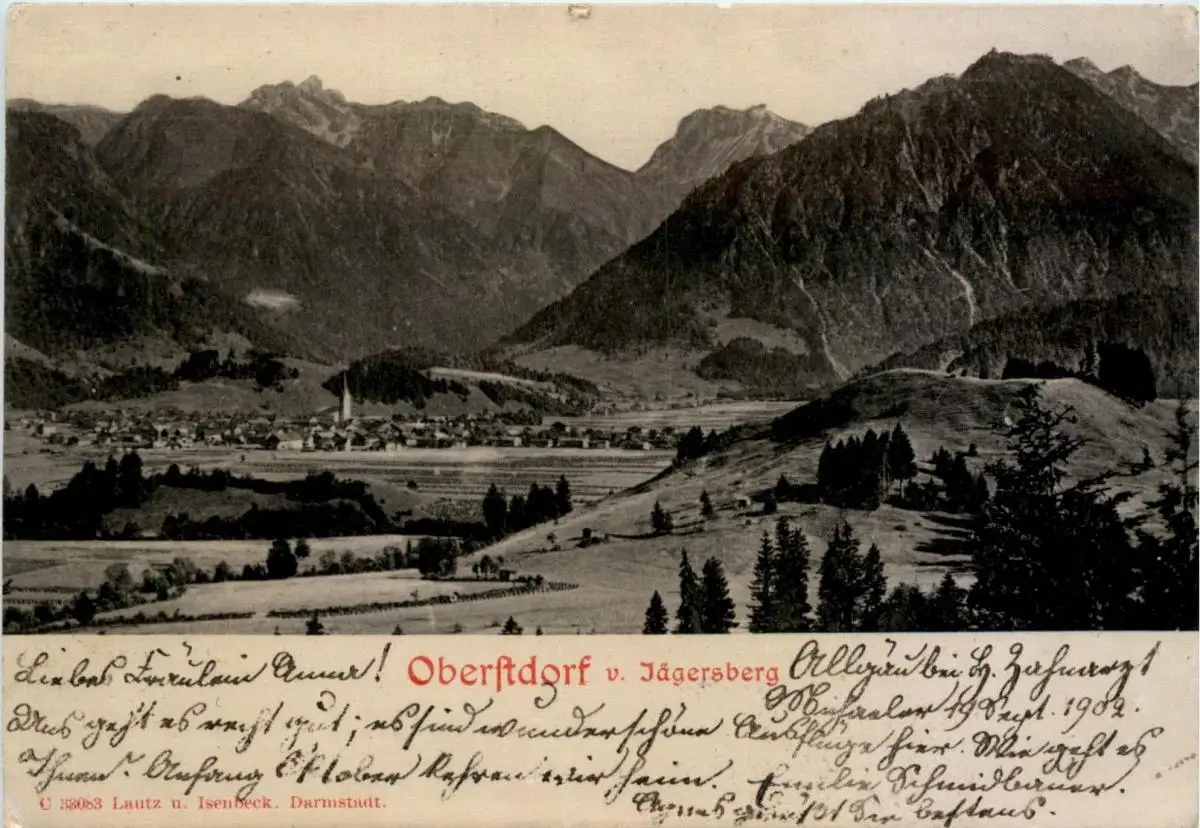 Liebes Fräulein Anna!
Oberstdorf v. Jägersberg
Allgäu bei H. Zahnarzt
Michaeler 19 Sept. 1902.
Uns geht es recht gut; es sind wunderschöne Ausflüge hier. Wie geht es
Ihnen? Anfang Oktober kehren wir heim. Emilie Schmidbauer.
Agnes grüßt Sie bestens.
C 33083 Lautz u. Isenbeck. Darmstadt.